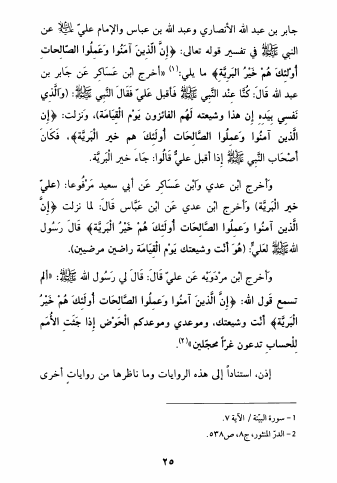 جابر بن عبد الله الأنصاري وعبد الله بن عباس والإمام عليّ ﷺ عن
النبي ﷺ في تفسير قوله تعالى: ﴿إِنَّ الَّذِينَ آمَنُوا وَعَمِلُوا الصَّالِحَاتِ
أُولَئِكَ هُمْ خَيْرُ الْبَرِيَّةِ﴾ ما يلي:(١) «أخرج ابْن عَسَاكِر عَن جَابر بن
عبد الله قَالَ: كُنَّا عِنْد النَّبِي ﷺ فأقبل عَليّ فَقَالَ النَّبِي ﷺ: (وَالَّذِي
نَفسِي بِيَدِهِ إِن هذا وشيعته لَهُم الفائزون يَوْم الْقِيَامَة)، وَنزلت: ﴿إِن
الَّذين آمنُوا وَعمِلُوا الصَّالِحَات أُولَئِكَ هم خير الْبَريَّة﴾، فَكَانَ
أَصْحَاب النَّبِي ﷺ إِذا أقبل عليٌّ قَالُوا: جَاءَ خير الْبَريَّة.
وَأخرج ابْن عدي وَابْن عَسَاكِر عَن أبي سعيد مَرْفُوعا: (عليّ
خير الْبَريَّة) وَأخرج ابْن عدي عَن ابْن عَبَّاس قَالَ: لما نزلت ﴿إِنَّ
الَّذين آمنُوا وَعمِلُوا الصَّالِحَات أُولَئِكَ هُمْ خَيْرُ الْبَريَّة﴾ قَالَ رَسُول
الله ﷺ لعَليّ: (هُوَ أَنْت وشيعتك يَوْم الْقِيَامَة راضين مرضيين).
وَأخرج ابْن مرْدَوَيْه عَن عليّ قَالَ: قَالَ لي رَسُول الله ﷺ: «ألم
تسمع قَول الله: ﴿إِنَّ الَّذِينَ آمَنُوا وَعَمِلُوا الصَّالِحَات أُولَئِكَ هُمْ خَيْرُ
الْبَرِيَّة﴾ أَنْت وشيعتك، وموعدي وموعدكم الْحَوْض إِذا جَثَت الْأُمَم
لِلْحسابِ تدعون غرّاً محجّلين»(٢).
إذن، استناداً إلى هذه الروايات وما ناظرها من رواياتٍ أخرى
1- سورة البيّنة / الآية ٧.
2- الدرّ المنثور، ج٨، ص٥٣٨.
٢٥